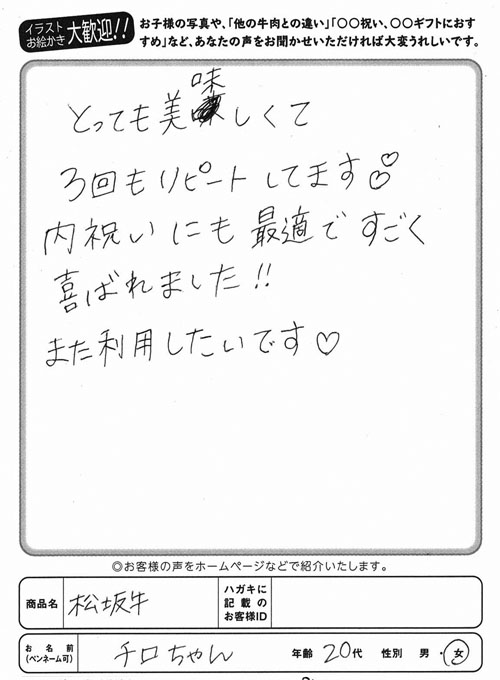 イラスト
お絵かき 大歓迎!!
お子様の写真や、「他の牛肉との違い」「〇〇祝い、〇〇ギフトにおす
すめ」など、あなたの声をお聞かせいただければ大変うれしいです。
とっても美味しくて
3回もリピートしてます♡♡
内祝いにも最適ですごく
喜ばれました!!
また利用したいです♡
◎お客様の声をホームページなどで紹介いたします。
商品名 松坂牛 ハガキに
記載の
お客様ID
お名前
(ペンネーム可) チロちゃん 年齢 20代 性別 男・女